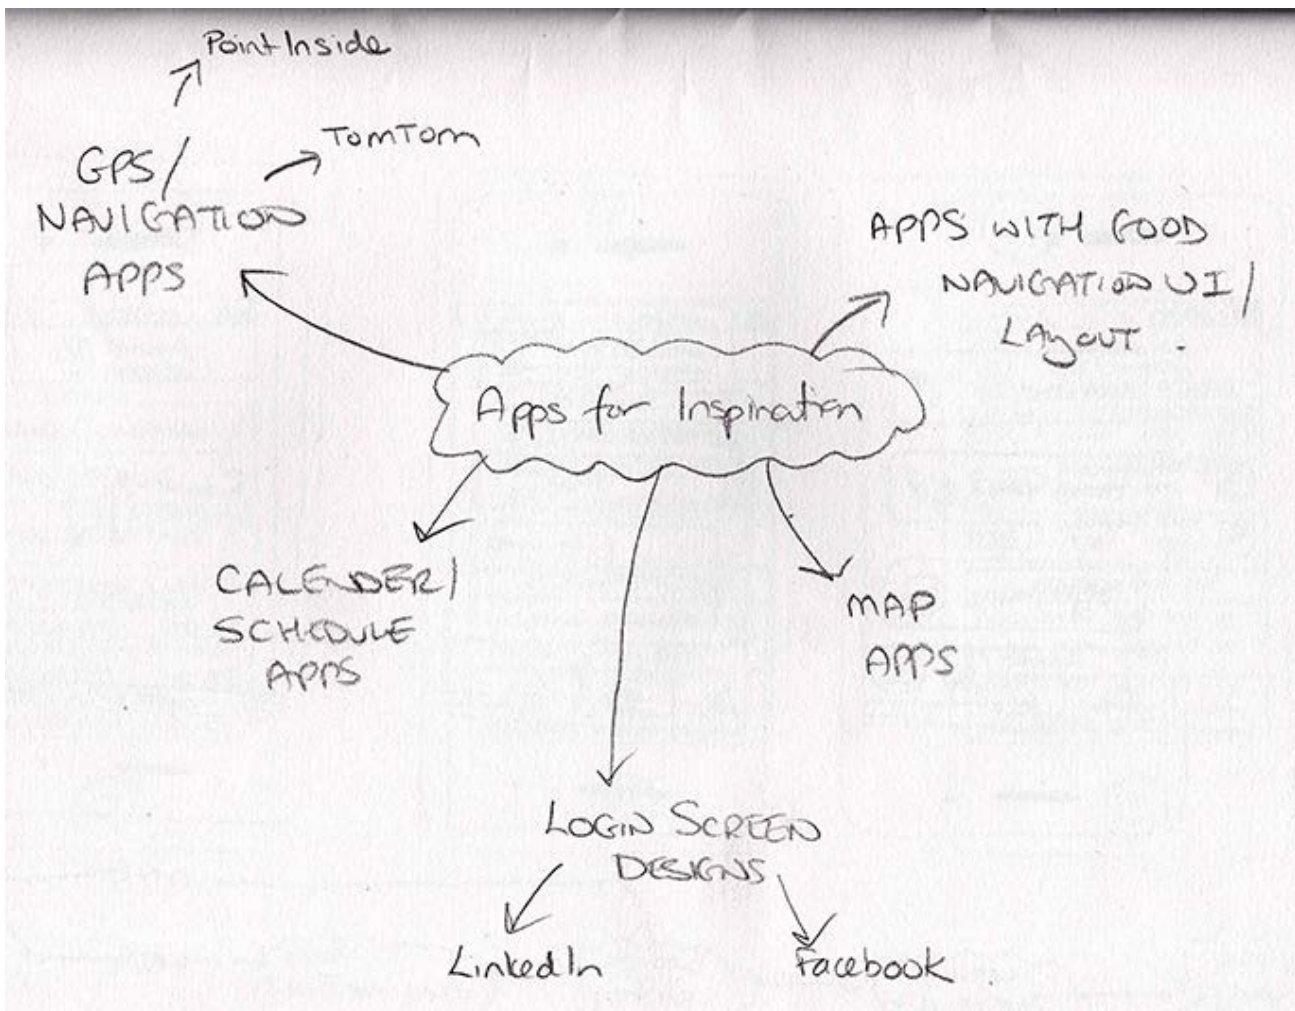 PointInside
TomTom
GPS/
NAVIGATION
APPS
APPS WITH GOOD
NAVIGATION UI/
LAyOUT.
Apps for Inspiration
CALENDER/
SCHEDULE
APPS
MAP
APPS
LOGIN SCREEN
DESIGNS
LinkedIn
Facebook